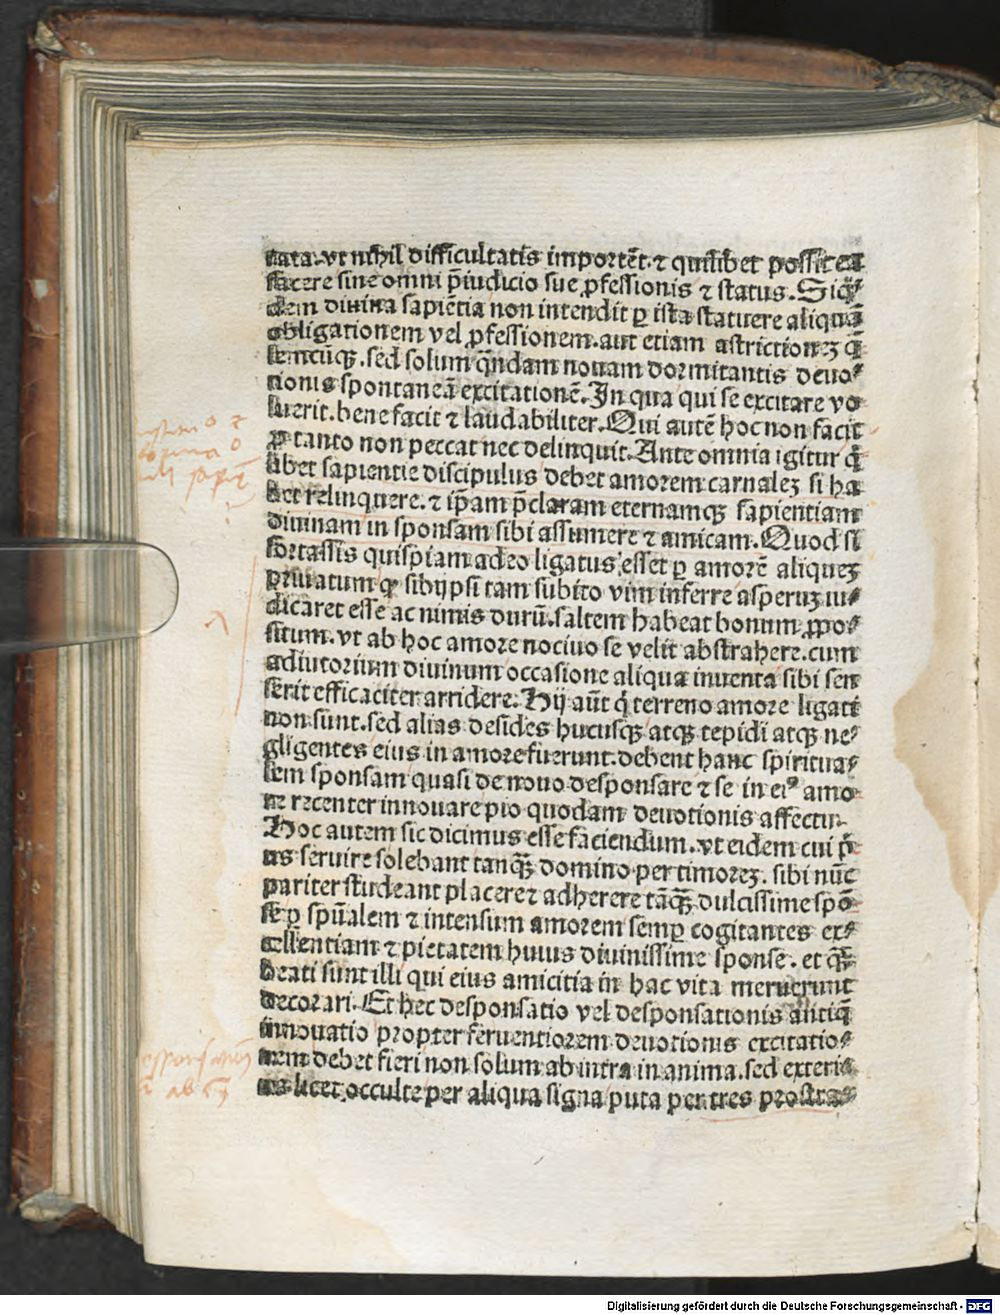 tata. vt nihil difficultatis importēt. ⁊ quilibet possit ea
facere sine omni p̄iudicio sue ꝓfessionis ⁊ status. Siq̇⸗
dem diuina sapiētia non intendit ꝑ ista statuere aliquā
obligationem vel ꝓfessionem. aut etiam astrictionez q̄
lemcūqꝫ. sed solum q̄ndam nouam dormitantis deuo⸗
tionis spontaneā excitationē. In qua qui se excitare vo
luerit. bene facit ⁊ laudabiliter. Qui autē hoc non facit
ꝓ tanto non peccat nec delinquit. Ante omnia igitur q̇
libet sapientie discipulus debet amorem carnalez si ha
bet relinquere. ⁊ ip̄am p̄claram eternamqꝫ sapientiam
diuinam in sponsam sibi assumere ⁊ amicam. Quod si
fortassis quispiam adeo ligatus esset ꝑ amorē aliquez
priuatum ꝙ sibijpsi tam subito vim inferre asperuz iu⸗
dicaret esse ac nimis durū. saltem habeat bonum ꝓpo⸗
situm. vt ab hoc amore nociuo se velit abstrahere. cum
adiutorium diuinum occasione aliqua inuenta sibi sen
serit efficaciter arridere. Hij aūt q̇ terreno amore ligati
non sunt. sed alias desides hucusqꝫ atqꝫ tepidi atqꝫ ne⸗
gligentes eius in amore fuerunt. debent hanc spiritua⸗
lem sponsam quasi de nouo desponsare ⁊ se in eiꝰ amo
re recenter innouare pio quodam deuotionis affectu.
Hoc autem sic dicimus esse faciendum. vt eidem cui ṗ
us seruire solebant tanqꝫ domino per timorez. sibi nūc
pariter studeant placere ⁊ adherere tāqꝫ dulcissime spō
se ꝑ spūalem ⁊ intensum amorem semꝑ cogitantes ex⸗
cellentiam ⁊ pietatem huius diuinissime sponse. et qꝫ
beati sunt illi qui eius amicitia in hac vita meruerunt
decorari. Et hec desponsatio vel desponsationis antiq̄
innouatio propter feruentiorem deuotionis excitatio⸗
nem debet fieri non solum ab intra in anima. sed exteri⸗
us licet occulte per aliqua signa puta per tres prostra⸗
Digitalisierung gefördert durch die Deutsche Forschungsgemeinschaft - DFG